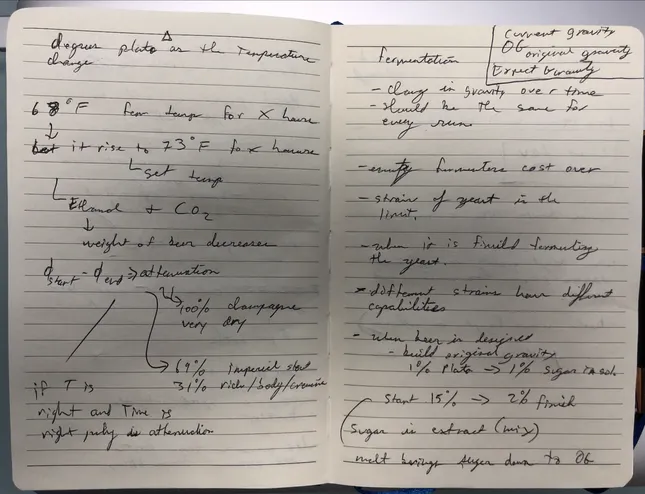 Δ
degrees plato as the Temperature
change
68°F ferm temp for X hours
↓
let it rise to 73°F for X hours
set temp
Ethanol + CO2
↓
weight of beer decreases
d start - d end => attenuation
100% champagne
very dry
69% Imperial stout
31% rich/body/creamie
if T is
right and Time is
right is attenuation
Current gravity
OG original gravity
Expect Gravity
Fermentation
- change in gravity over time
- should be the same for
every run
- empty fermenters cost over
- strain of yeast is the
limit.
- when it is finild fermenting
the yeast.
* different strains have different
capabilities
- when beer is designed
- build original gravity
1% Plato → 1% sugar in sol.
Start 15% → 2% finish
Sugar is extract (mix)
melt sugar down to OG